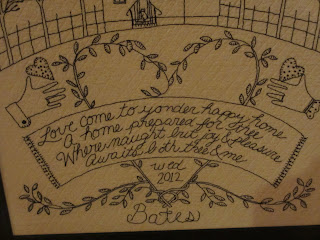 Love come to yonder happy home
A home prepared for thee
Where naught but joy & pleasure
Awaits both thee & me
wot
2012
Bates